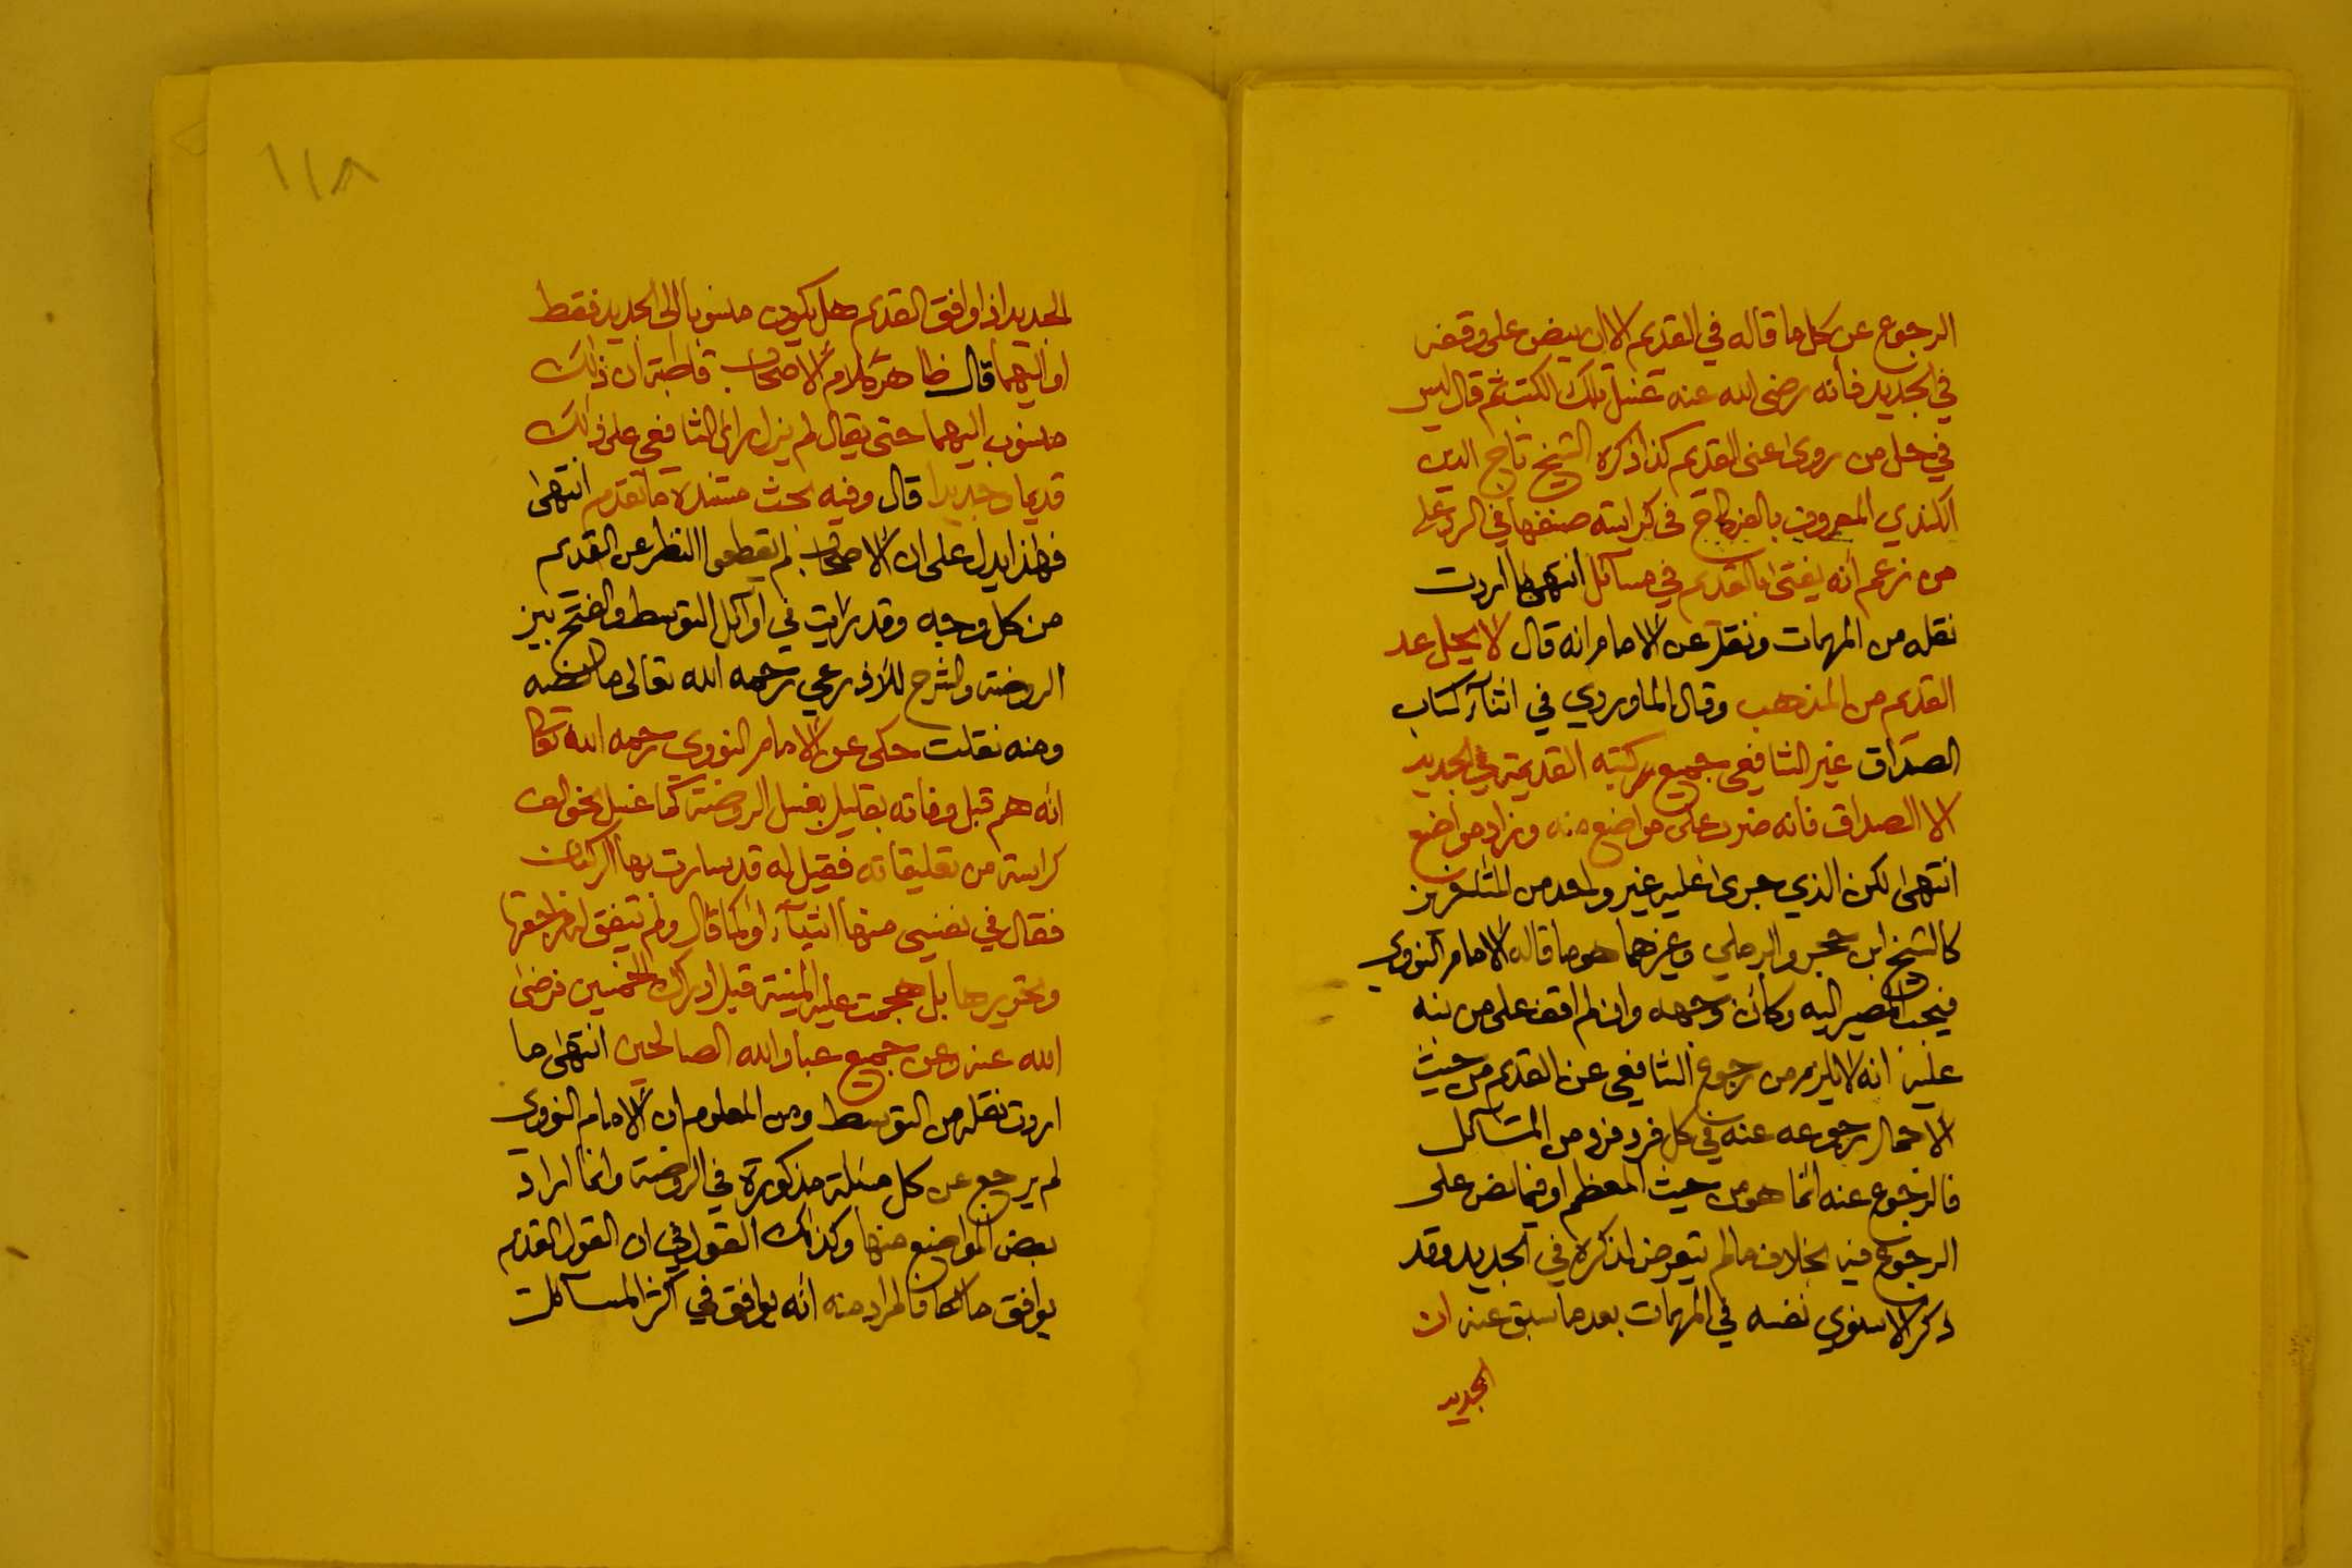 الرجوع عن كل ما قاله في القديم الا ان ينص على وقفه
في الجديد فأنه رضى الله عنه غسل تلك الكتب ثم قال ليس
في حل من روى عنى القديم كذا ذكره الشيخ تاج الدين
الكندي المعروف بالفركاح في كراسته صنفها في الرد على
من زعم أنه يفتى بالقديم في مسائل انتهى ما اردت
نقله من المهمات ونقل عن الامام انه قال لا يحل عد
القديم من المذهب وقال الماوردي في اثنآء كتاب
الصداق غير الشافعى جميع كتبه القديمة في الجديد
الا الصداق فانه ضرب على مواضع منه وزاد مواضع
انتهى لكن الذي جرى عليه غير واحد من المتأخرين
كالشيخ ابن حجر والرملي وغيرهما هو ما قاله الامام النووي
فيجب المصير اليه وكأن وجهه وان لم اقف على من نبه
عليه انه لا يلزم من رجوع الشافعى عن القديم من حيث
الاجمال رجوعه عنه في كل فرد فرد من المسائل
فالرجوع عنه انما هو من حيث المعظم او فيما نص على
الرجوع فيه بخلاف ما لم يتعرض لذكره في الجديد وقد
ذكر الاسنوي نفسه في المهمات بعد ما سبق عنه ان
الجديد
١١٨
الجديد اذا وافق القديم هل يكون منسوبا الى الجديد فقط
او اليهما قال ظاهر كلام الاصحاب قاطبة ان ذلك
منسوب اليهما حتى يقال لم يزل رأى الشافعى على ذلك
قديما وجديدا قال وفيه بحث مستنده ما تقدم انتهى
فهذا يدل على ان الاصحاب لم يقطعوا النظر عن القديم
من كل وجه وقد رايت في اوآئل التوسط والفتح بين
الروضة والشرح للاذرعي رحمه الله تعالى ما نصه
ومنه نقلت حكى عن الامام النووي رحمه الله تعالى
انه هم قبل وفاته بقليل بغسل الروضة كما غسل نحو الف
كراسة من تعليقاته فقيل له قد سارت بها الركبان
فقال في نفسي منها اشيآء او كما قال ولم يتفق له مراجعتها
وتحريرها بل هجمت عليه المنية قبل ادراك الخمسين فرضى
الله عنه وعن جميع عباد الله الصالحين انتهى ما
اردت نقله من التوسط ومن المعلوم ان الامام النووي
لم يرجع عن كل مسئلة مذكورة في الروضة وانما اراد
بعض المواضع منها وكذلك القول في ان القول القديم
يوافق مالكا فالمراد منه أنه يوافق في اكثر المسآئل